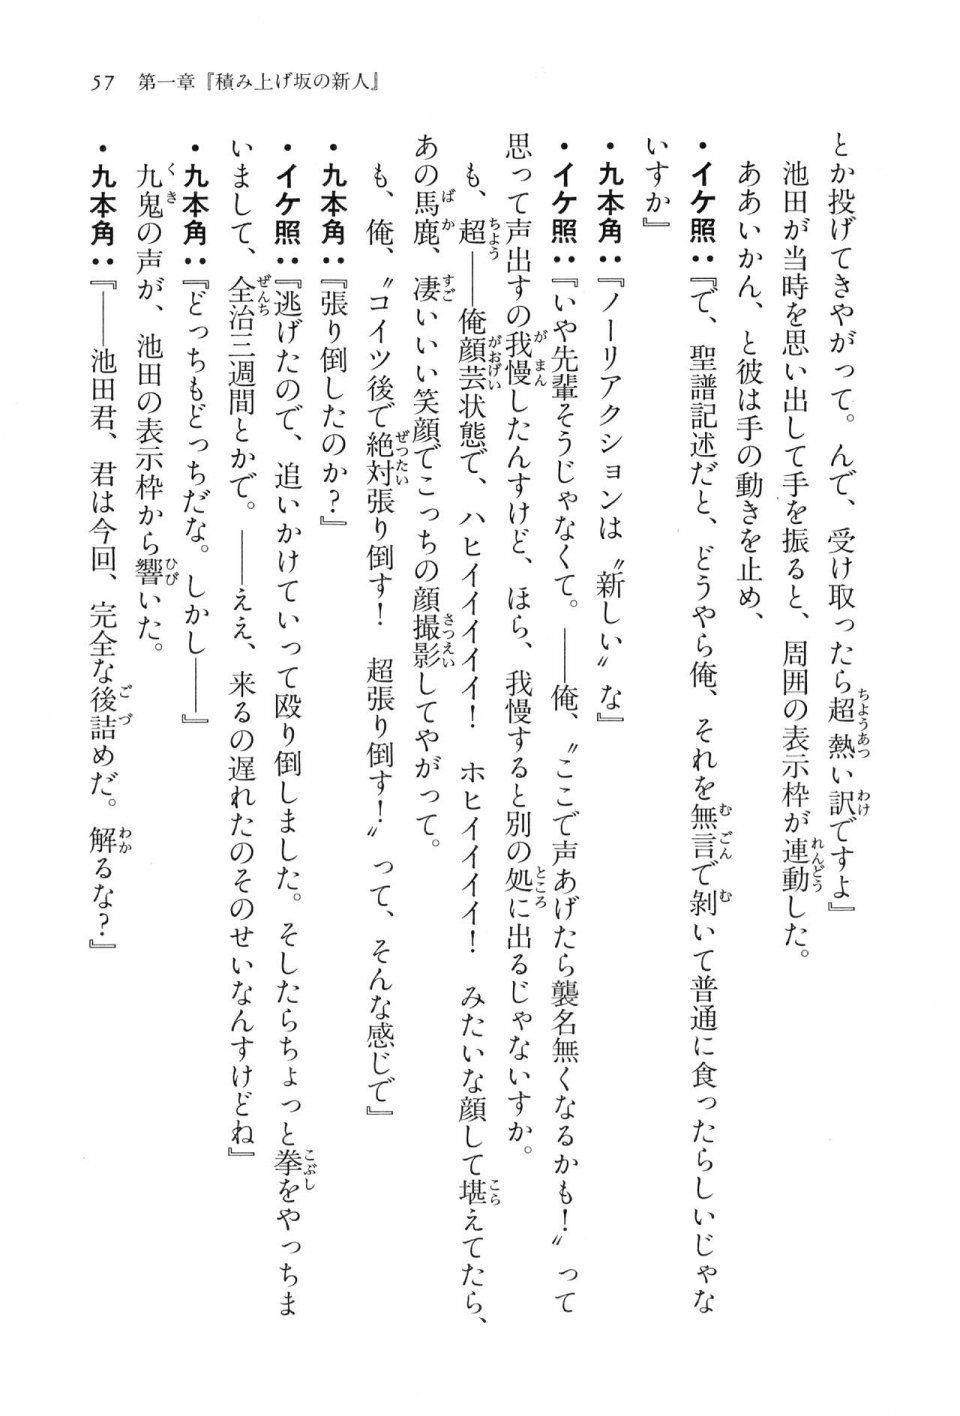 57 第一章『積み上げ坂の新人』
とか投げてきやがって。んで、受け取ったら超熱い訳ですよ』
池田が当時を思い出して手を振ると、周囲の表示枠が連動した。
ああいかん、と彼は手の動きを止め、
・イケ照：『で、聖譜記述だと、どうやら俺、それを無言で剝いて普通に食ったらしいじゃな
いすか』
・九本角：『ノーリアクションは〝新しい〟な』
・イケ照：『いや先輩そうじゃなくて。――俺、〝ここで声あげたら襲名無くなるかも！〟って
思って声出すの我慢したんすけど、ほら、我慢すると別の処に出るじゃないすか。
も、超――俺顔芸状態で、ハヒイイイイイ！　ホヒイイイイ！　みたいな顔して堪えてたら、
あの馬鹿、凄いいい笑顔でこっちの顔撮影してやがって。
も、俺、〝コイツ後で絶対張り倒す！　超張り倒す！〟って、そんな感じで』
・九本角：『張り倒したのか？』
・イケ照：『逃げたので、追いかけていって殴り倒しました。そしたらちょっと拳をやっちま
いまして、全治三週間とかで。――ええ、来るの遅れたのそのせいなんすけどね』
・九本角：『どっちもどっちだな。しかし――』
九鬼の声が、池田の表示枠から響いた。
・九本角：『――池田君、君は今回、完全な後詰めだ。解るな？』